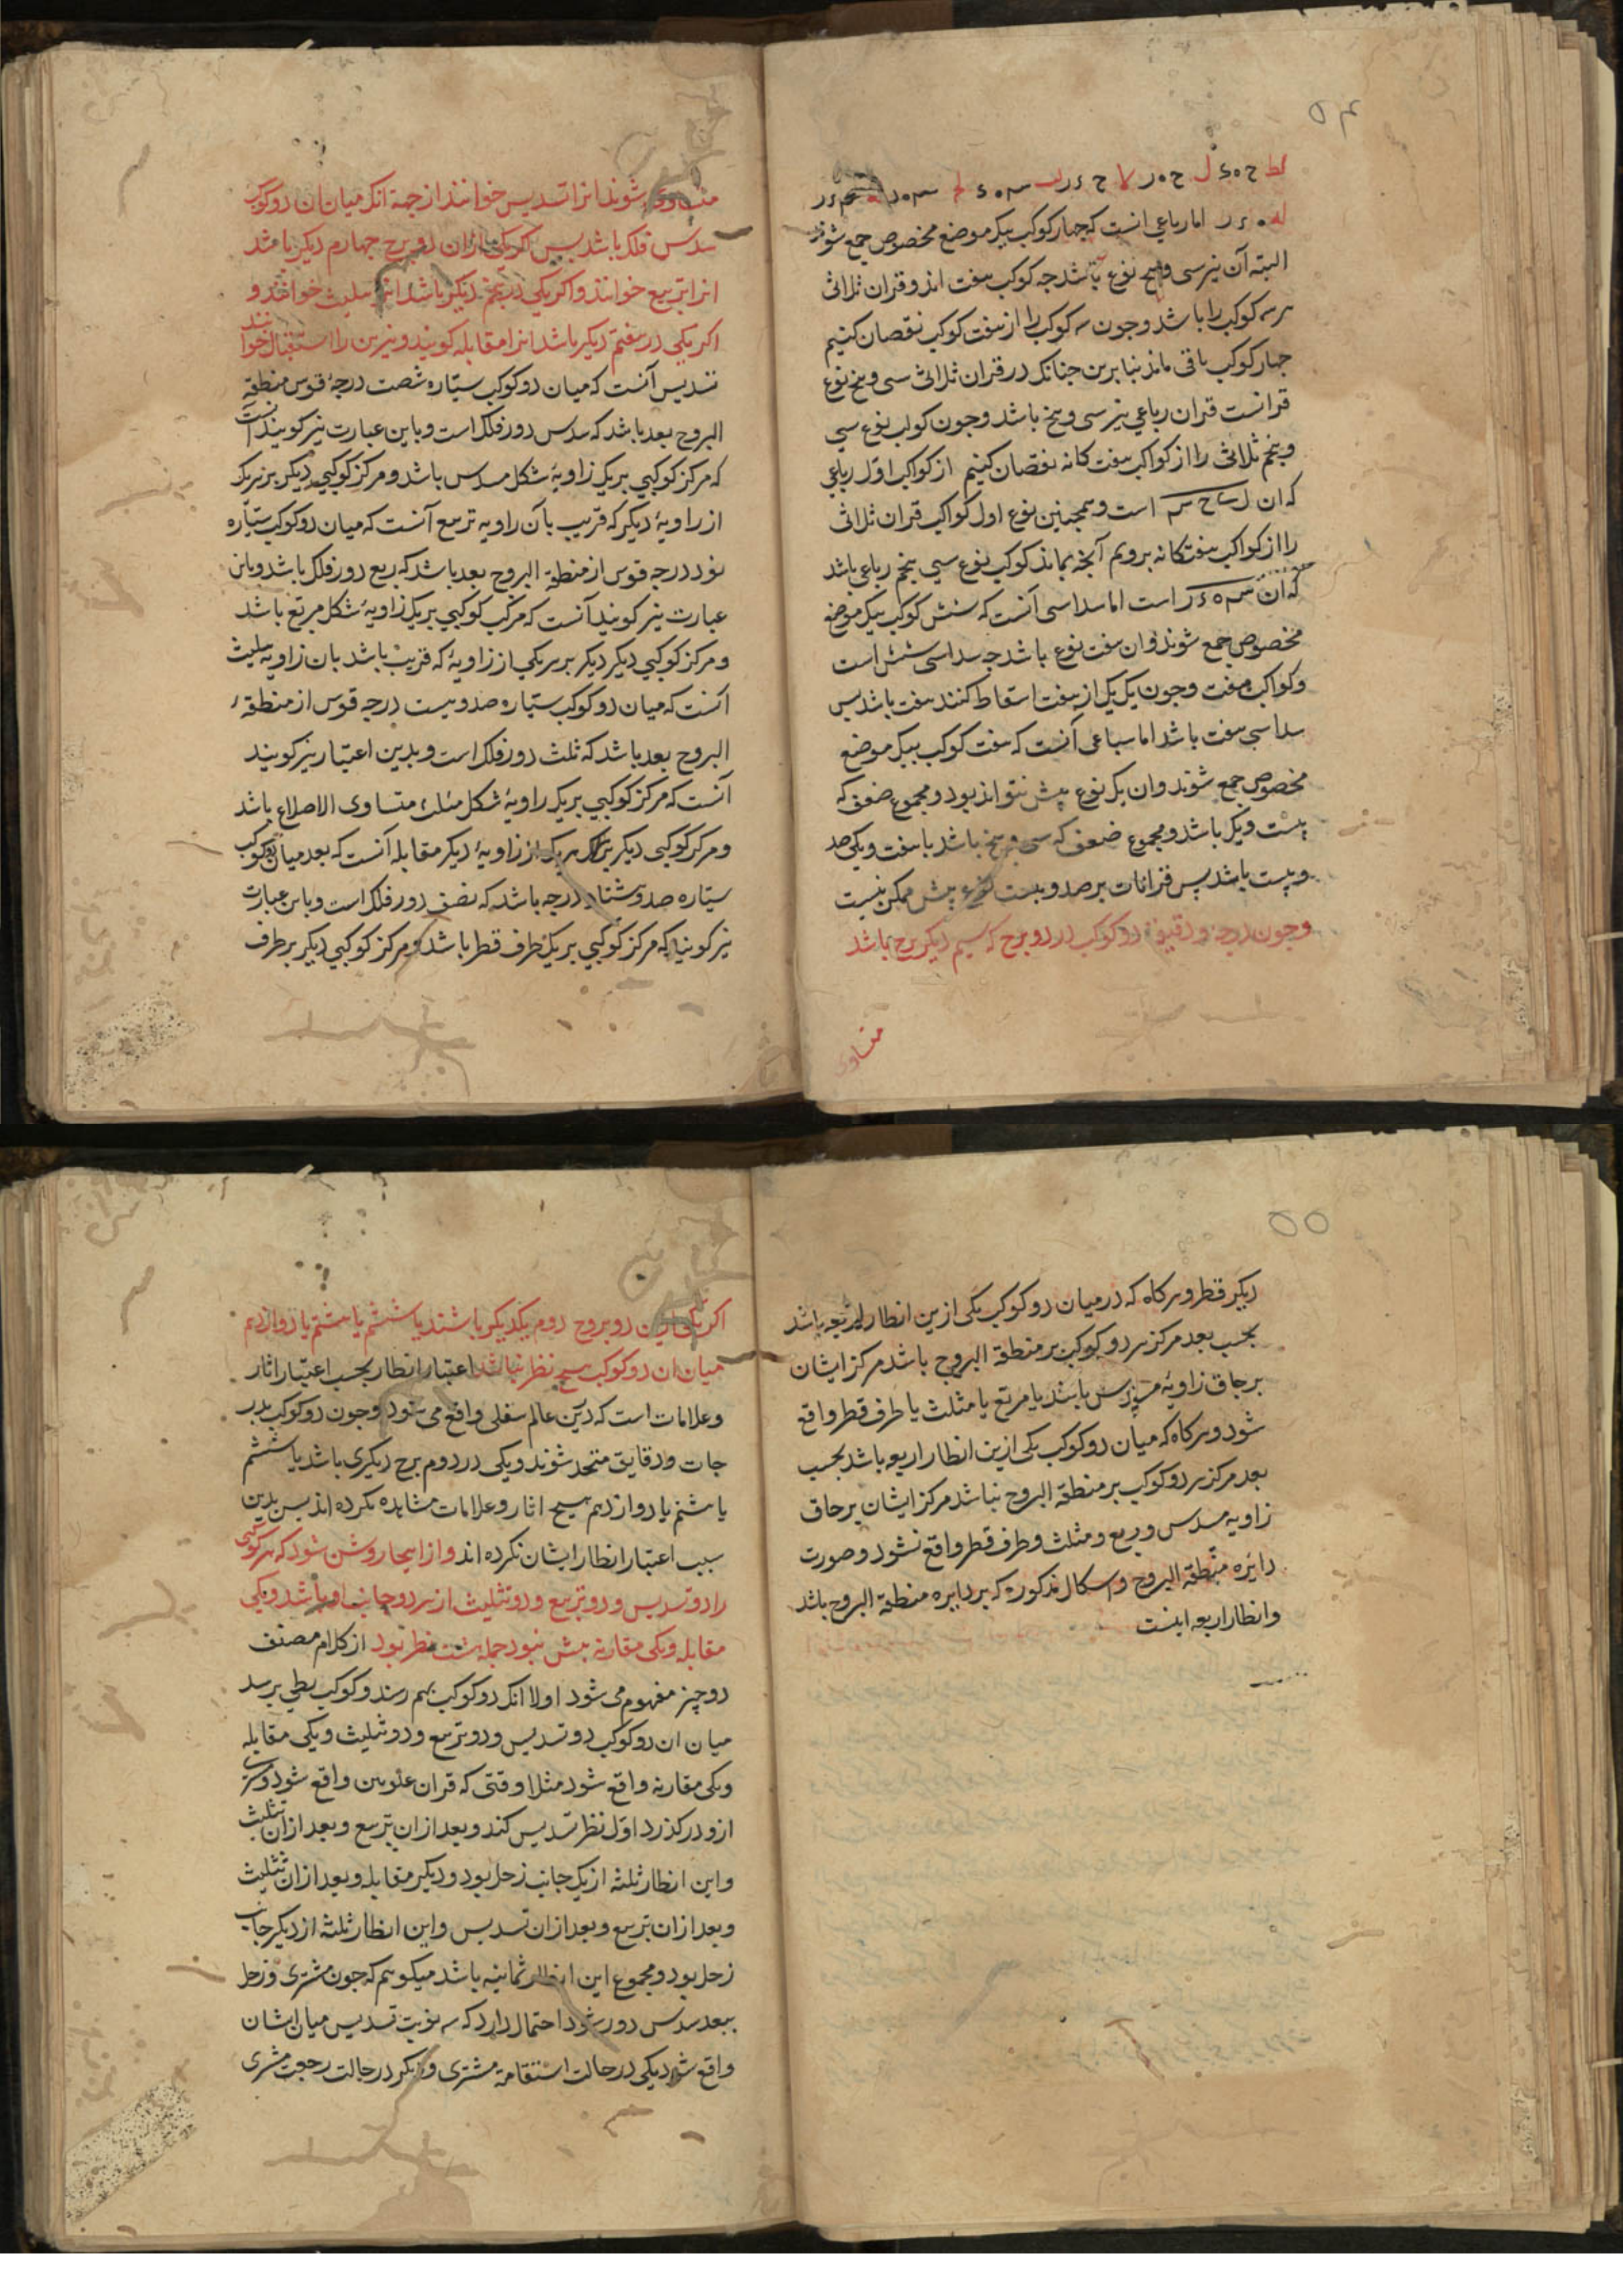 ۵۴
لط ح ه ی ل ح ه ر لا ح ی ر لب س ه ی لح س ه ر لد س ی ر
له ه ی ر اما رباعی انست که جهار کوکب بیک موضع مخصوص جمع شوند
البته آن نیز سی و پنج نوع باشد جه کوکب هفت اند و قران ثلاثی
هر سه کوکب را باشد و جون سه کوکب را از هفت کوکب نقصان کنیم
جهار کوکب باقی ماند بنابرین جنانک در قران ثلاثی سی و پنج نوع
قرانست قران رباعی نیز سی و پنج باشد و جون کوکب نوع سی
و پنجم ثلاثی را از کواکب هفت کانه نقصان کنیم از کواکب اول رباعی
که ان ل ح س است و همجنین نوع اول کواکب قران ثلاثی
را از کواکب هفتکانه برویم آنجه بماند کوکب نوع سی پنجم رباعی باشد
که ان س ه ی ر است اما سداسی آنست که شش کوکب بیک موضع
مخصوص جمع شوند و ان هفت نوع باشد جه سداسی شش است
و کواکب هفت و جون یک یک از هفت اسقاط کنند هفت باشد پس
سداسی هفت باشد اما سباعی آنست که هفت کوکب بیک موضع
مخصوص جمع شوند و ان یک نوع پیش نتواند بود و مجموع ضعف که
بیست و یک باشد و مجموع ضعف که سی و پنج باشد با هفت و یکی صد
و بیست باشد پس قرانات بر صد و بیست نوع بیش ممکن نیست
وجون درجه و دقیقهٔ دو کوکب در دو برج که سیم دیگر برج باشد
متساوی
متساوی شوند انرا تسدیس خوانند از جهة انک میان ان دو کوکب
سدس فلک باشد پس اگر یکی ازان دو برج جهارم دیکر باشد
انرا تربیع خوانند و اکر یکی در پنجم دیکر باشد انرا تثلیث خوانند و
اکر یکی در هفتم دیکر باشد انرا مقابله کویند و نیرین را استقبال خوانند
تسدیس آنست که میان دو کوکب سیّاره شصت درجهٔ قوس منطقة
البروج بعد باشد که سدس دور فلک است و باین عبارت نیز کویند انست
که مرکز کوکبی بر یک زاویهٔ شکل مسدس باشد و مرکز کوکبی دیکر بر هر یک
از زاویهٔ دیکر که قریب بآن زاویه تربیع آنست که میان دو کوکب سیّاره
نود درجه قوس از منطقة البروج بعد باشد که ربع دور فلک باشد و باین
عبارت نیز کویند آنست که مرکب کوکبی بر یک زاویهٔ شکل مربّع باشد
و مرکز کوکبی دیکر دیکر بر هر یکی از زاویهٔ که قریب باشد بان زاویه تثلیث
آنست که میان دو کوکب سیّاره صد و بیست درجه قوس از منطقهٔ
البروج بعد باشد که ثلث دور فلک است و بدین اعتبار نیز کویند
آنست که مرکز کوکبی بر یک زاویهٔ شکل مثلث متساوی الاضلاع باشد
و مرکز کوکبی دیکر بر هر یک از زاویهٔ دیکر مقابله آنست که بعد میان دو کوکب
سیّاره صد و هشتاد درجه باشد که نصف دور فلک است و باین عبارت
نیز کویند که مرکز کوکبی بر یک طرف قطر باشد و مرکز کوکبی دیکر بر طرف
۵۵
دیکر قطر و هرکاه که در میان دو کوکب یکی ازین انظار اربعه باشد
بحسب بعد مرکز هر دو کوکب بر منطقة البروج باشد مرکز ایشان
بر حاق زاویهٔ مسدس باشد یا مربّع یا مثلث یا طرف قطر واقع
شود و هرکاه که میان دو کوکب یکی ازین انظار اربعه باشد بحسب
بعد مرکز هر دو کوکب بر منطقة البروج نباشد مرکز ایشان بر حاق
زاویه مسدس و ربع و مثلث و طرف قطر واقع نشود و صورت
دایره منطقة البروج و اشکال مذکوره که بر دایره منطقة البروج باشد
و انظار اربعه اینست
اکر یکی ازین دو بروج دوم یکدیکر باشند یا ششم یا هشتم یا دوازدهم
میان ان دو کوکب هیج نظر نباشد اعتبار انظار بحسب اعتبار اثار
و علامات است که درین عالم سفلی واقع می شود و جون دو کوکب بدر
جات و دقایق متحد شوند و یکی در دوم برج دیکری باشد یا ششم
یا هشتم یا دوازدهم هیج اثار و علامات مشاهده نکرده اند پس بدین
سبب اعتبار انظار ایشان نکرده اند و از اینجا روشن شود که هر کوکبی
را دو تسدیس و دو تربیع و دو تثلیث از هر دو جانب او باشد و یکی
مقابله و یکی مقارنه بیش نبود جمله هشت نظر بود از کلام مصنف
دو چیز مفهوم می شود اولا انک دو کوکب بهم رسند و کوکب بطی برسد
میان ان دو کوکب دو تسدیس و دو تربیع و دو تثلیث و یکی مقابله
و یکی مقارنه واقع شود مثلا وقتی که قران علویین واقع شود و مشتری
ازو درکذرد اوّل نظر تسدیس کند و بعد ازان تربیع و بعد ازان تثلیث
و این انظار ثلثه از یک جانب زحل بود و دیکر مقابله و بعد ازان تثلیث
و بعد ازان تربیع و بعد ازان تسدیس و این انظار ثلثه از دیکر جانب
زحل بود و مجموع این انظار ثمانیه باشد میکویم که جون مشتری و زحل
ببعد سدس دور شود احتمال دارد که سه نوبت تسدیس میان ایشان
واقع شود یکی در حالت استقامة مشتری و دیکر در حالت رجعت مشتری